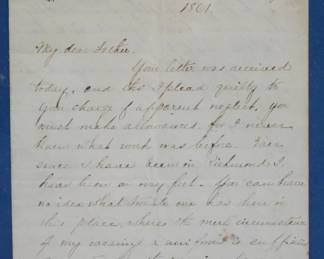 1861.
My dear Father.
Your letter was received
today, and tho I plead guilty to
your charge of apparent neglect, you
must make allowances for I never
knew what work was before. Ever
since I have been in Richmond I
have been on my feet. You can have
no idea what trouble one has here in
this place, where the mere circumstance
of my wearing a uniform is sufficient